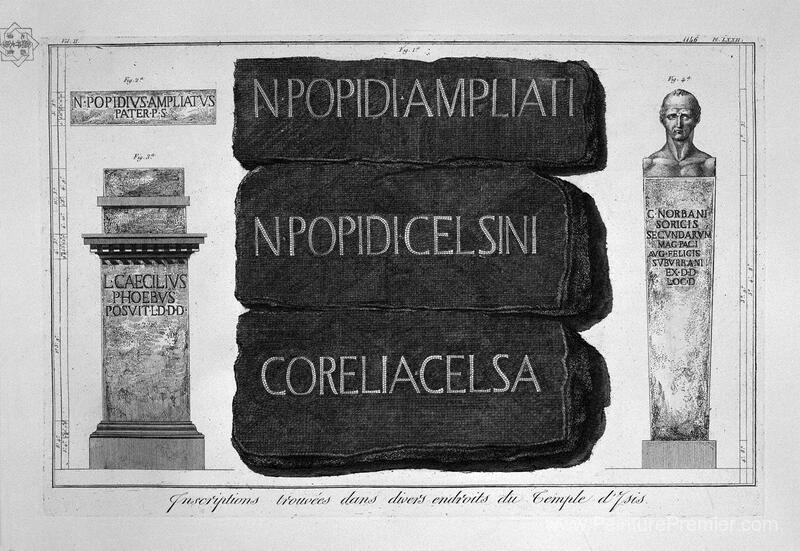 Vol. II.
1146 Pl. LXXII.
Fig. 1ᵃ
Fig. 2ᵃ
N·POPIDIVS·AMPLIATVS
PATER·P·S·
Fig. 3ᵃ
L·CAECILIVS
PHOEBVS
POSVIT·L·D·D·D·
N·POPIDI·AMPLIATI
N·POPIDI·CELSINI
CORELIACELSA
Fig. 4ᵃ
C·NORBANI
SORICIS
SECVNDARVM
MAG·PAGI
AVG·FELICIS
SVBVRBANI
EX·D·D
LOC·D
Inscriptions trouvées dans divers endroits du Temple d'Isis.
www.PeinturePremier.com